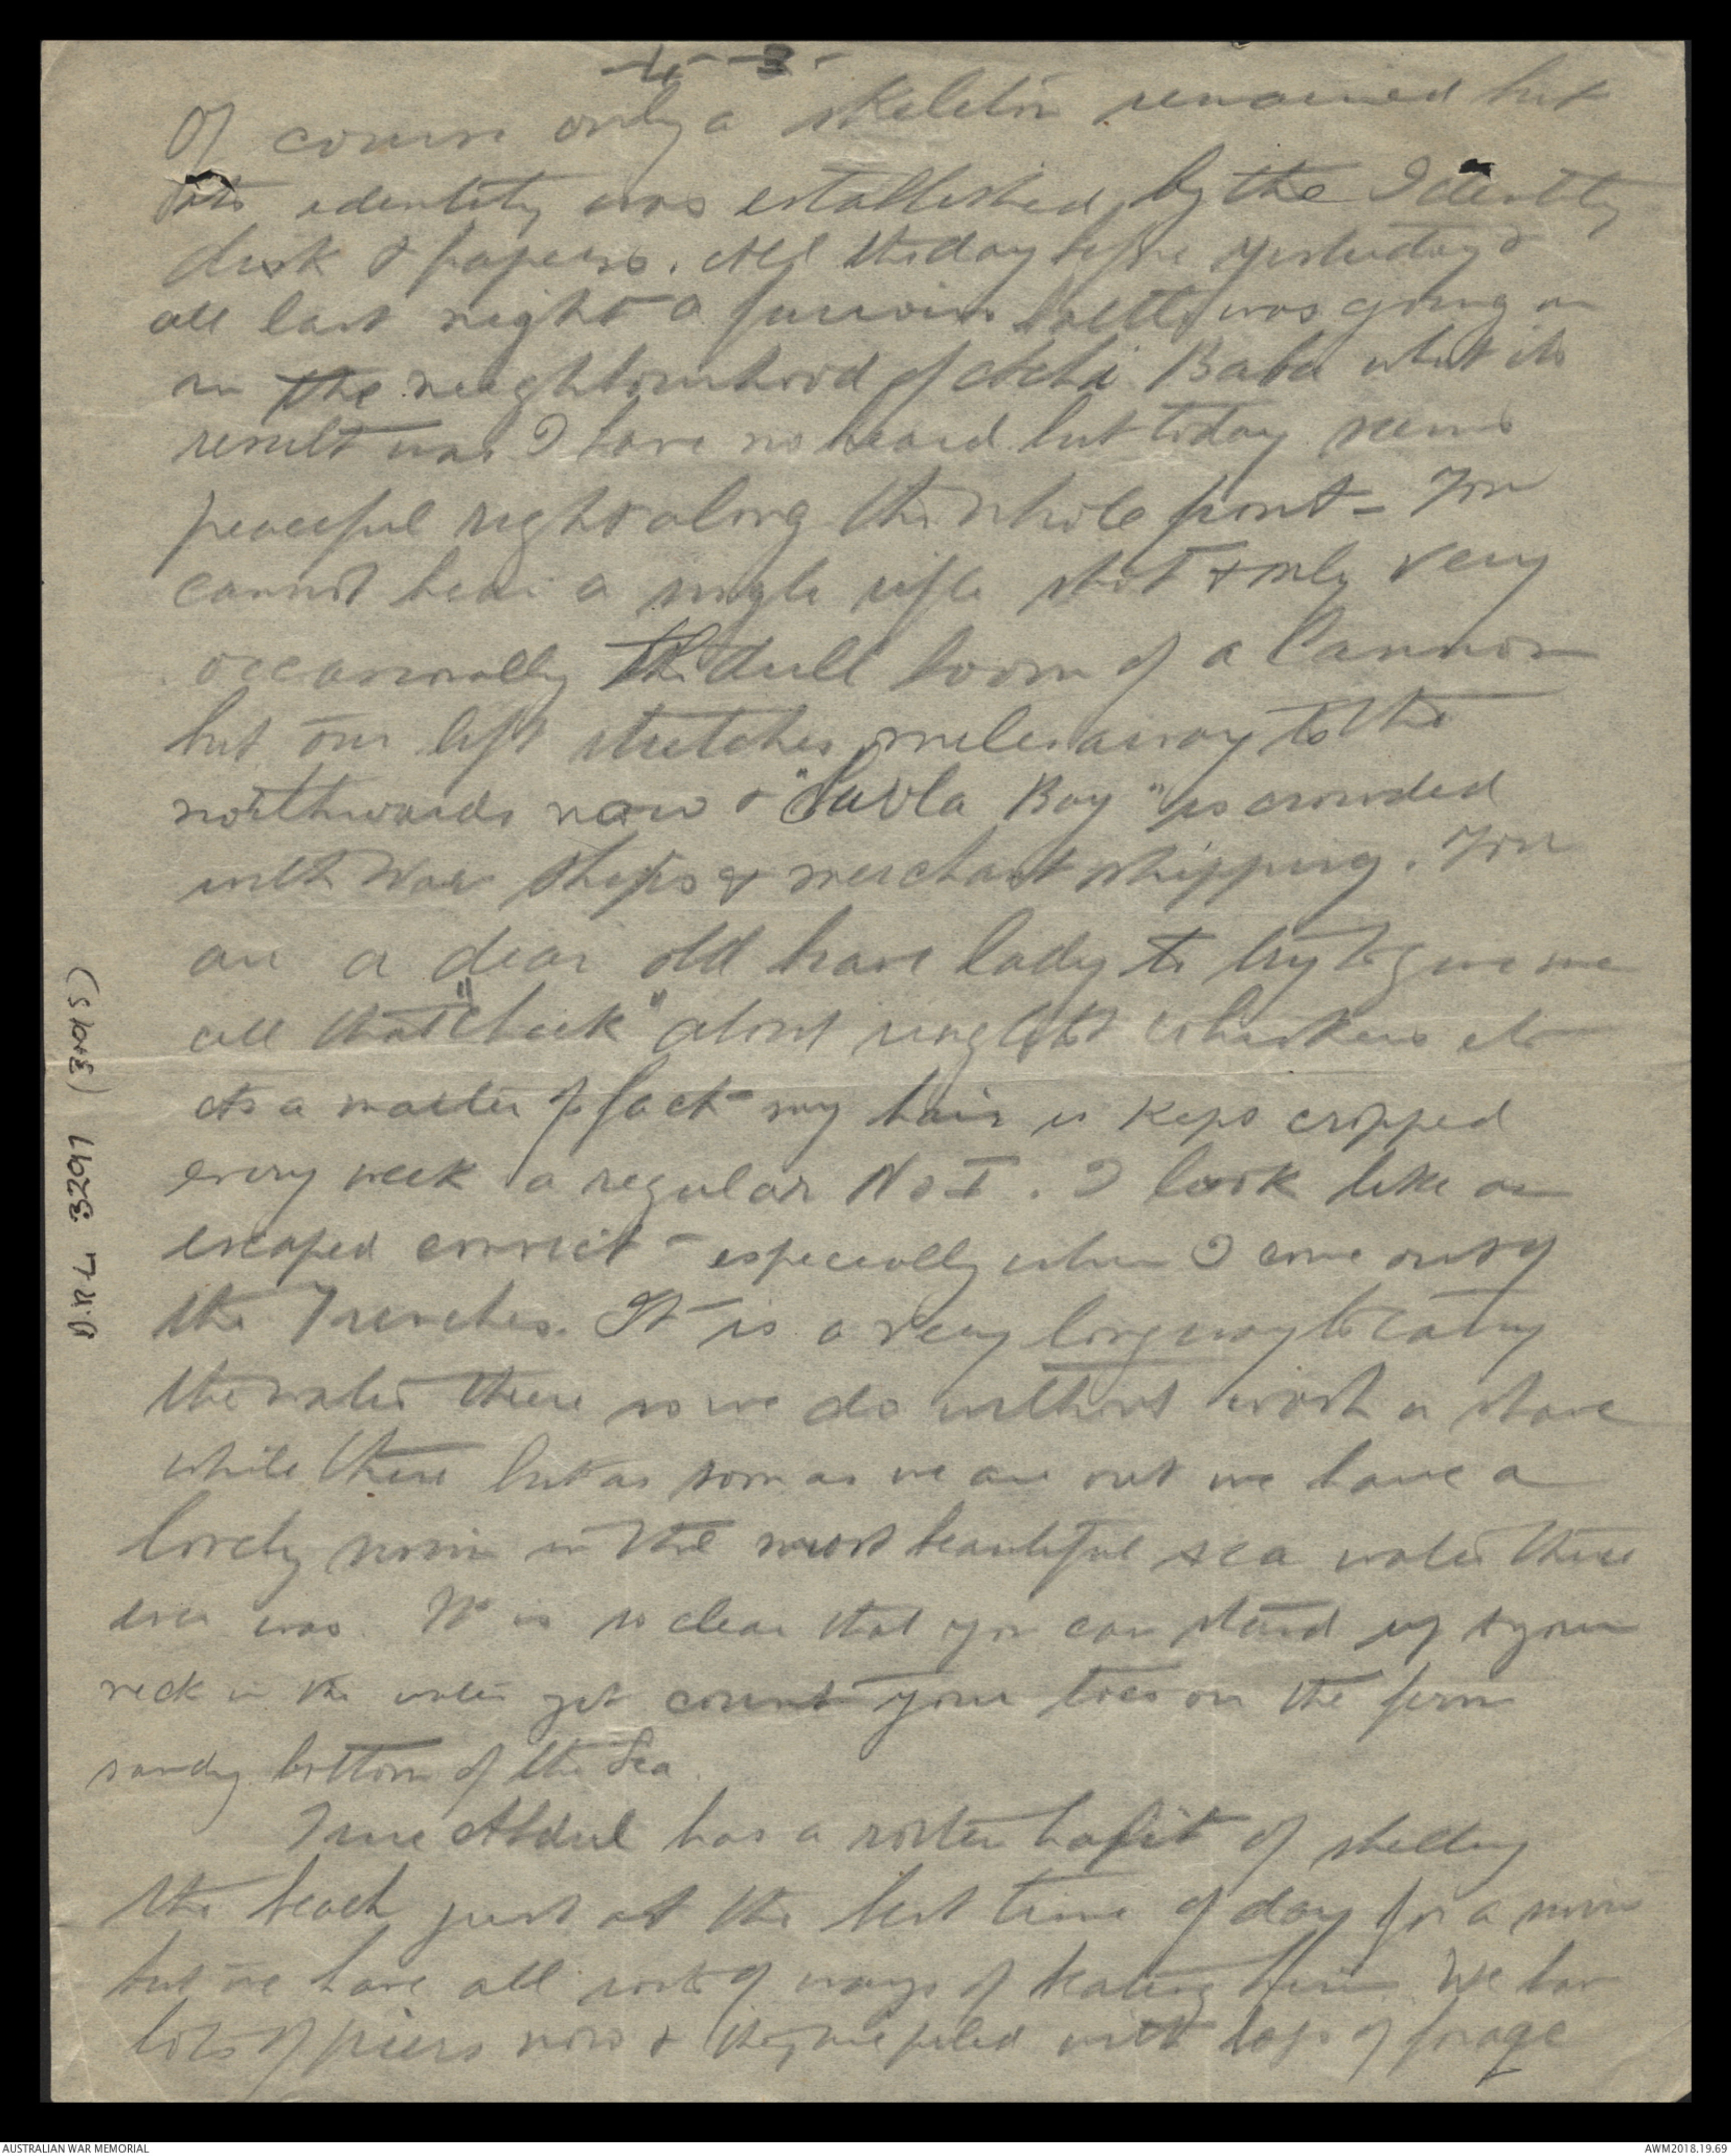 - 3 -
Of course only a skeleton remained but
its identity was established by the Identity
disk & papers. All the day before yesterday &
all last night a furious battle was going on
in the neighbourhood of Achi Baba what its
result was I have no heard but today seems
peaceful right along the whole front - You
cannot hear a single rifle shot & only very
occasionally the dull boom of a Cannon
but our left stretches miles away to the
northwards now & "Suvla Bay" is crowded
with War ships & merchant shipping. You
are a dear old brave lady to try to give me
all that "cheek" about ringlets whiskers etc
As a matter of fact - my hair is kept cropped
every week a regular No I. I look like an
escaped convict - especially when I come out of
the Trenches. It is a very long way to carry
the water there so we do without wash or shave
while there but as soon as we are out we have a
lovely swim in the most beautiful sea water there
ever was. It is so clear that you can stand up to your
neck in the water yet count your toes on the firm
sandy bottom of the Sea.
True Abdul has a rotten habit of shelling
the beach just at the best time of day for a swim
but we have all sorts of ways of beating him. We have
lots of piers now & they are piled with of forage
D.R.L 3297 (3 of 5)
AUSTRALIAN WAR MEMORIAL
AWM2018.19.69